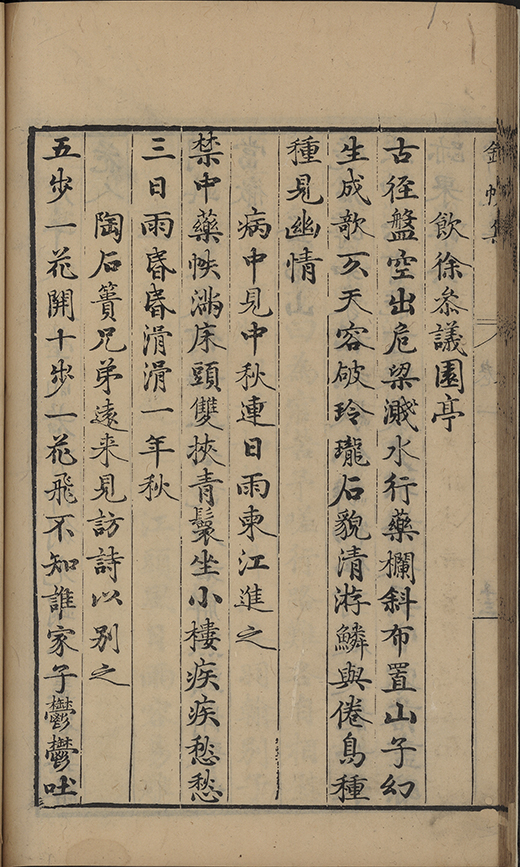 飲徐叅議園亭
古徑盤空出危梁濺水行藥欄斜布置山子幻
生成歌又天容破玲瓏石貌清游鱗與倦鳥種
種見幽情
病中見中秋連日雨柬江進之
禁中藥帙滿床頭雙挾青鬟坐小樓疾疾愁愁
三日雨昏昏滑滑一年秋
陶石簣兄弟遠来見訪詩以别之
五步一花開十步一花飛不知誰家子鬱鬱吐